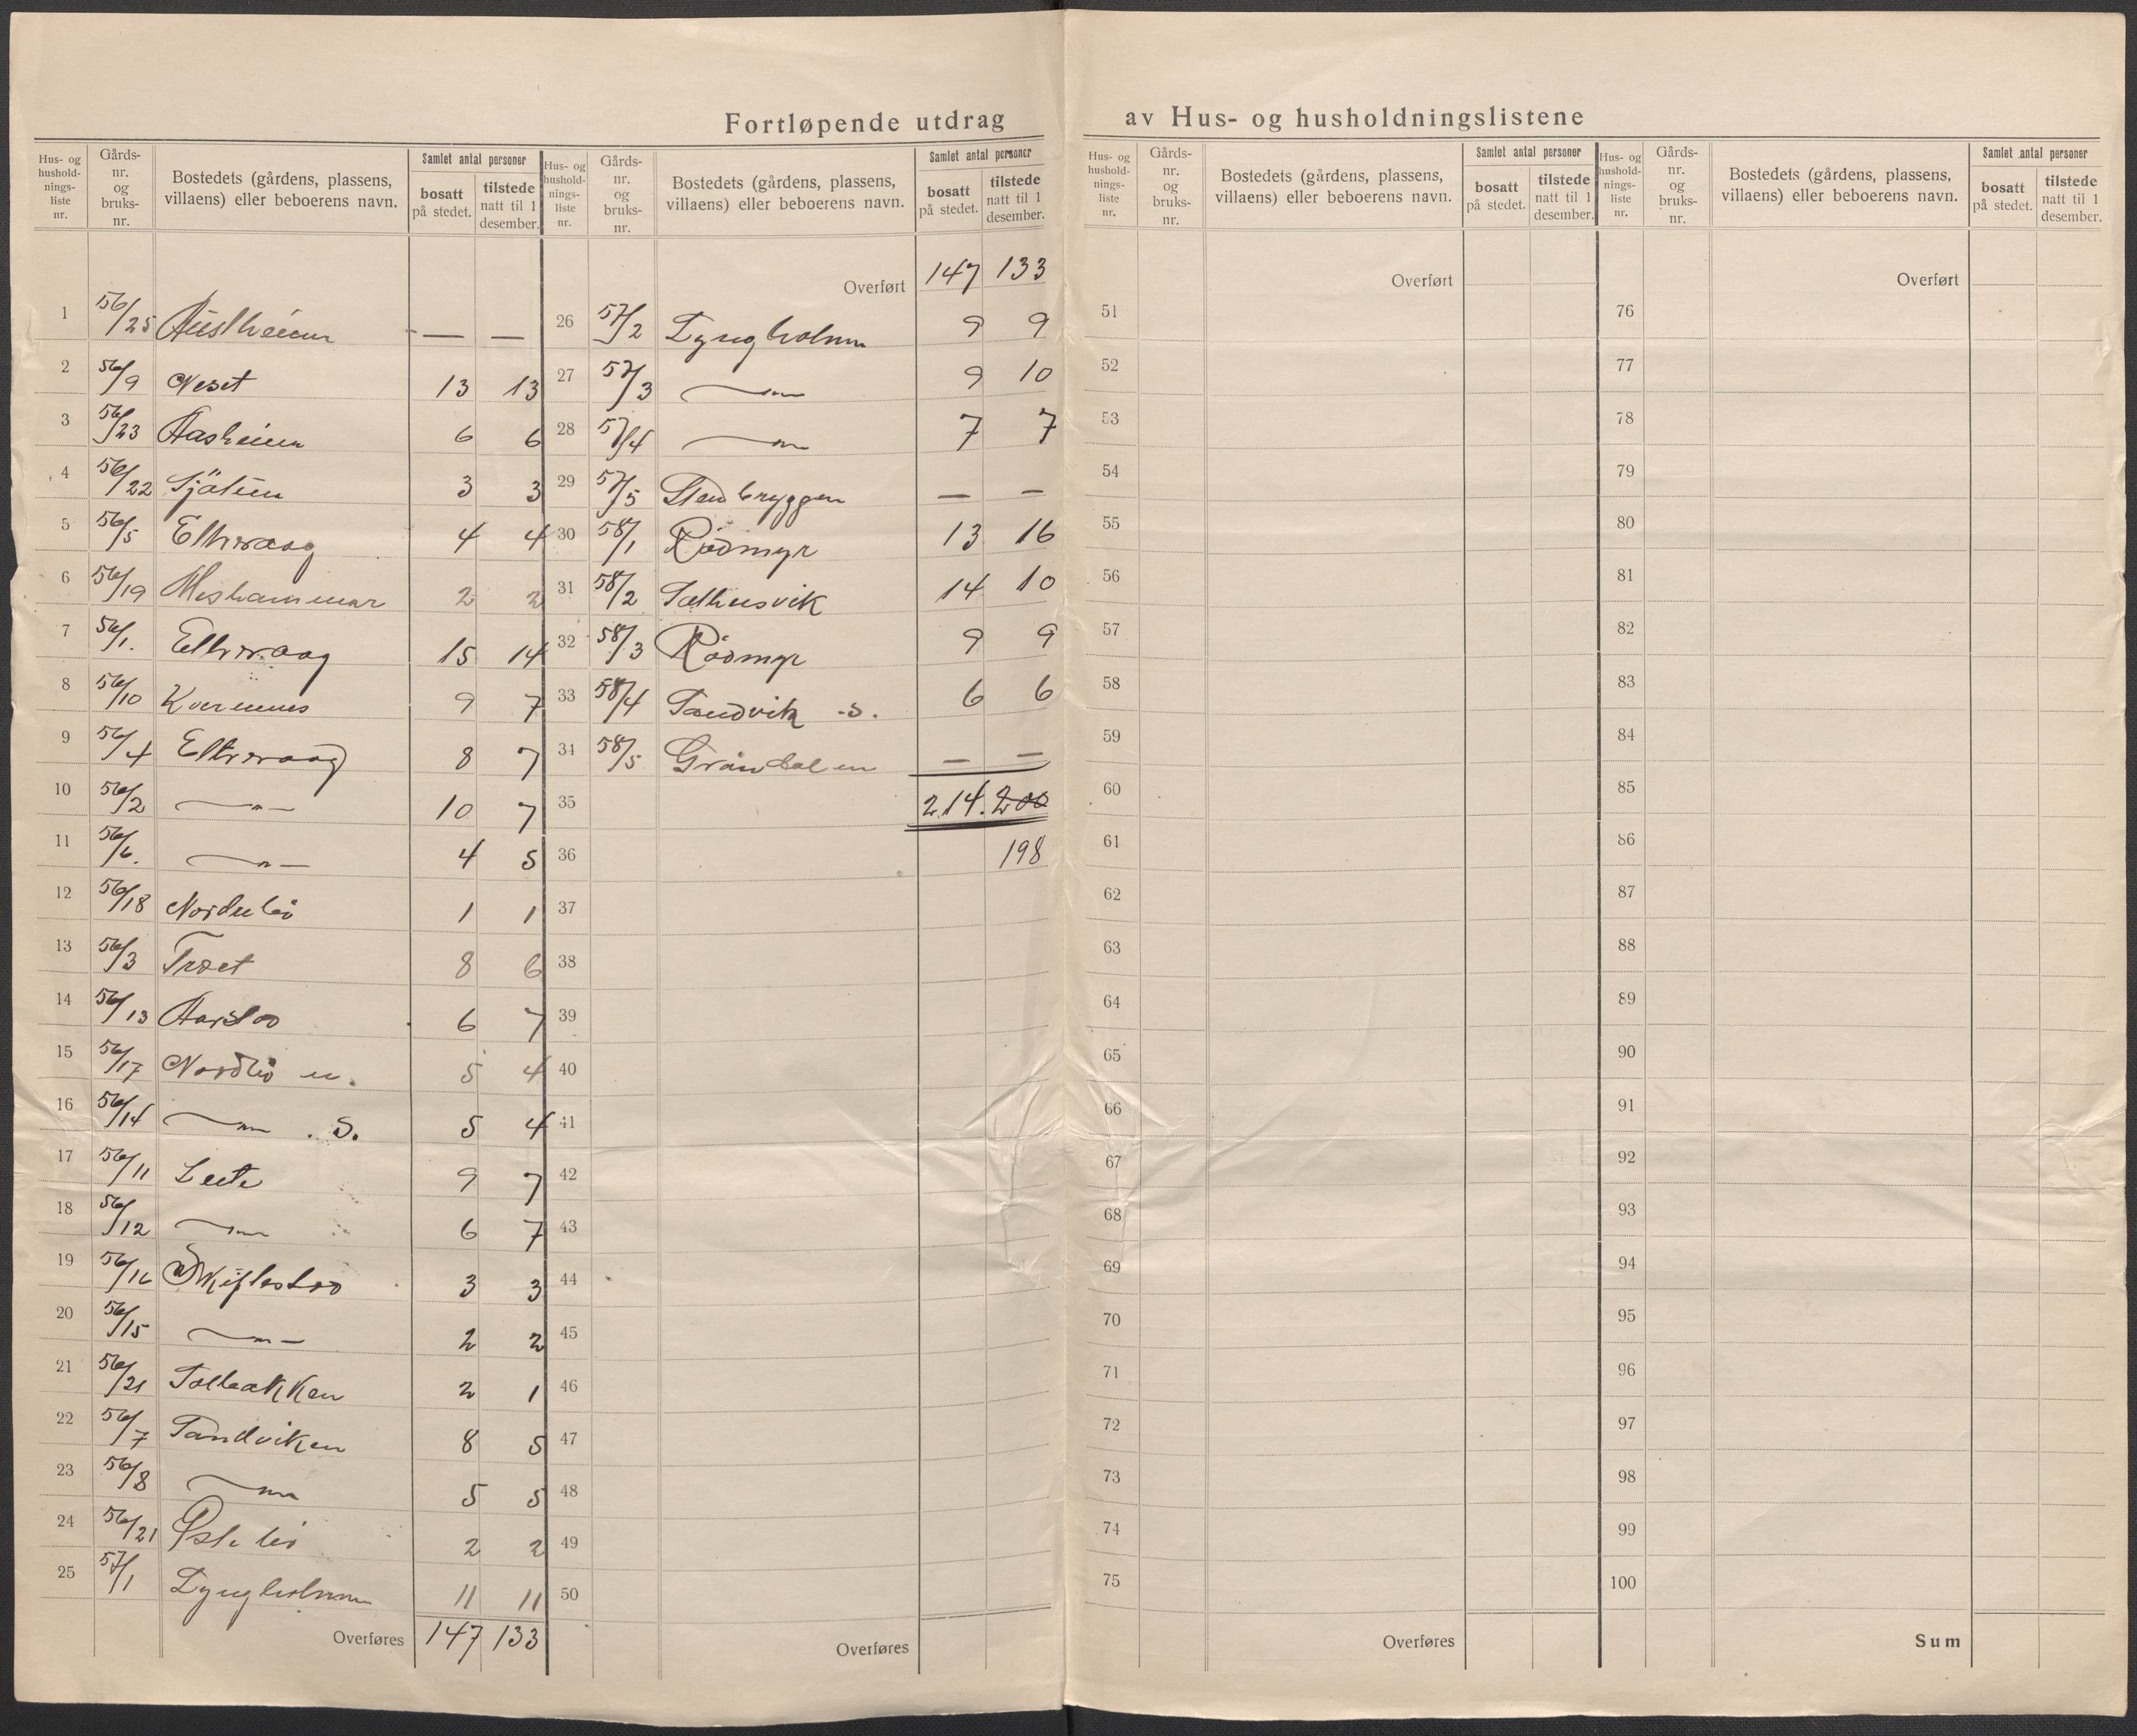 Fortløpende utdrag av Hus- og husholdningslistene
Hus- og husholdningsliste nr. | Gårds-nr. og bruks-nr. | Bostedets (gårdens, plassens, villaens) eller beboerens navn. | Samlet antal personer bosatt på stedet. | tilstede natt til 1 desember.
1 56/25 Austheim — —
2 56/9 Neset 13 13
3 56/23 Aasheim 6 6
4 56/22 Sjötun 3 3
5 56/5 Eltvraag 4 4
6 56/19 Meshammar 2 2
7 56/1. Eltvraag 15 14
8 56/10 Kvernnes 9 7
9 56/4 Eltvraag 8 7
10 56/2 —"— 10 7
11 56/6. —"— 4 5
12 56/18 Nordli 1 1
13 56/3 Træet 8 6
14 56/13 Aarstoo 6 7
15 56/17 Nordlio n. 5 4
16 56/14 —"— . S. 5 4
17 56/11 Leite 9 7
18 56/12 —"— 6 7
19 56/16 Skiftestoo 3 3
20 56/15 —"— 2 2
21 56/21 Solbakken 2 1
22 56/7 Sandviken 8 5
23 56/8 —"— 5 5
24 56/21 Østelio 2 2
25 57/1 Lyngholmen 11 11
Overføres 147 133
Hus- og husholdningsliste nr. | Gårds-nr. og bruks-nr. | Bostedets (gårdens, plassens, villaens) eller beboerens navn. | Samlet antal personer bosatt på stedet. | tilstede natt til 1 desember.
Overført 147 133
26 57/2 Lyngholmen 9 9
27 57/3 —"— 9 10
28 57/4 —"— 7 7
29 57/5 Stenbryggen — —
30 58/1 Rødmyr 13 16
31 58/2 Salthusvik 14 10
32 58/3 Rødmyr 9 9
33 58/4 Sandvik S. 6 6
34 58/5 Gröndalen — —
35 214. 200
36 198
37
38
39
40
41
42
43
44
45
46
47
48
49
50
Overføres
Hus- og husholdningsliste nr. | Gårds-nr. og bruks-nr. | Bostedets (gårdens, plassens, villaens) eller beboerens navn. | Samlet antal personer bosatt på stedet. | tilstede natt til 1 desember.
Overført
51
52
53
54
55
56
57
58
59
60
61
62
63
64
65
66
67
68
69
70
71
72
73
74
75
Overføres
Hus- og husholdningsliste nr. | Gårds-nr. og bruks-nr. | Bostedets (gårdens, plassens, villaens) eller beboerens navn. | Samlet antal personer bosatt på stedet. | tilstede natt til 1 desember.
Overført
76
77
78
79
80
81
82
83
84
85
86
87
88
89
90
91
92
93
94
95
96
97
98
99
100
Sum